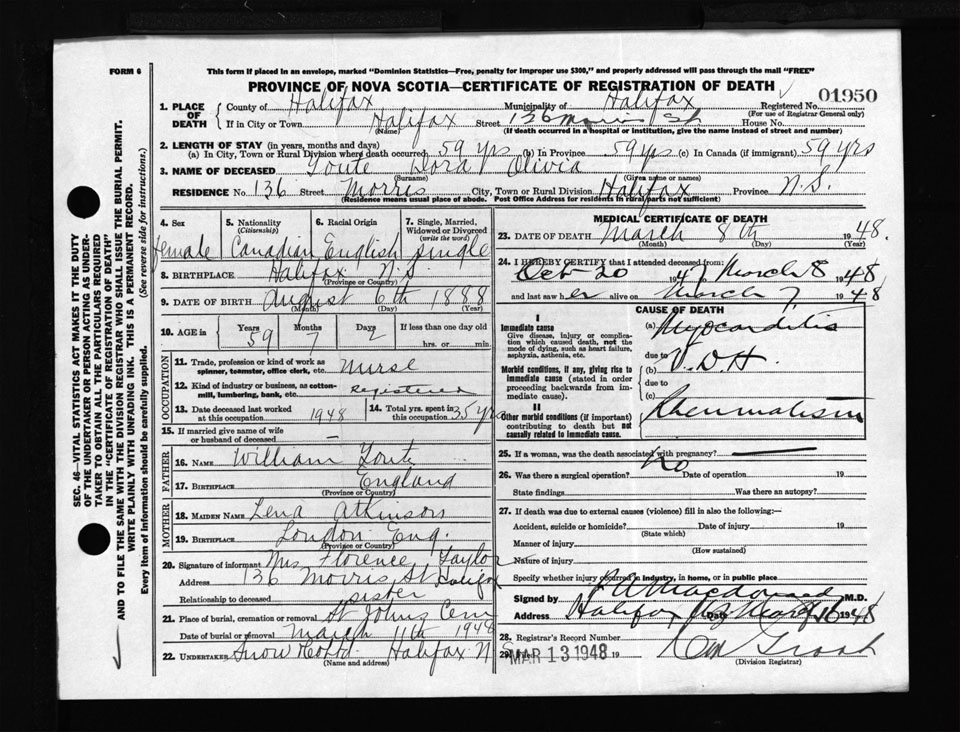 FORM 6
This form if placed in an envelope, marked "Dominion Statistics—Free, penalty for improper use $300," and properly addressed will pass through the mail "FREE"
PROVINCE OF NOVA SCOTIA—CERTIFICATE OF REGISTRATION OF DEATH
01950
1. PLACE OF DEATH
County of Halifax Municipality of Halifax Registered No.
(For use of Registrar General only)
If in City or Town Halifax Street 136 Morris St. House No.
(Name) (If death occurred in a hospital or institution, give the name instead of street and number)
2. LENGTH OF STAY (in years, months and days)
(a) In City, Town or Rural Division where death occurred 59 yrs (b) In Province 59 yrs (c) In Canada (if immigrant) 59 yrs
3. NAME OF DECEASED Dora Olivia
(Surname) (Given name or names)
RESIDENCE No. 136 Street Morris City, Town or Rural Division Halifax Province N.S.
(Residence means usual place of abode. Post Office Address for residents in rural parts not sufficient)
4. Sex
female
5. Nationality
(Citizenship)
Canadian
6. Racial Origin
English
7. Single, Married, Widowed or Divorced
(write the word)
single
8. BIRTHPLACE Halifax N.S.
(Province or Country)
9. DATE OF BIRTH August 6th 1888
(Month) (Day) (Year)
10. AGE in Years Months Days If less than one day old
59 7 2 hrs. or min.
OCCUPATION
11. Trade, profession or kind of work as spinner, teamster, office clerk, etc. Nurse
12. Kind of industry or business, as cotton-mill, lumbering, bank, etc. Registered
13. Date deceased last worked at this occupation 1948
14. Total yrs. spent in this occupation 35 yrs
15. If married give name of wife or husband of deceased —
FATHER
16. NAME William
17. BIRTHPLACE England
(Province or Country)
MOTHER
18. MAIDEN NAME Lena Atkinson
19. BIRTHPLACE London Eng.
(Province or Country)
20. Signature of informant Mrs Florence Taylor
Address 136 Morris St Halifax
Relationship to deceased sister
21. Place of burial, cremation or removal St Johns Cem
Date of burial or removal March 11th 1948
22. UNDERTAKER Snow Halifax N
(Name and address)
MEDICAL CERTIFICATE OF DEATH
23. DATE OF DEATH March 8th 1948.
(Month) (Day) (Year)
24. I HEREBY CERTIFY that I attended deceased from:
Oct 20 1947 March 8 1948
and last saw her alive on March 7, 1948
CAUSE OF DEATH
I
Immediate cause
Give disease, injury or complication which caused death, not the mode of dying, such as heart failure, asphyxia, asthenia, etc.
(a) Myocarditis
due to
Morbid conditions, if any, giving rise to immediate cause (stated in order proceeding backwards from immediate cause).
(b) V.D.H.
due to
(c)
II
Other morbid conditions (if important) contributing to death but not causally related to immediate cause.
Rheumatism
25. If a woman, was the death associated with pregnancy? —
26. Was there a surgical operation? no Date of operation 19
State findings Was there an autopsy?
27. If death was due to external causes (violence) fill in also the following:—
Accident, suicide or homicide? Date of injury 19
(State which)
Manner of injury
(How sustained)
Nature of injury
Specify whether injury occurred in industry, in home, or in public place
Signed by MacDonald M.D.
Address Halifax Date 1948
28. Registrar's Record Number
MAR 13 1948 19
(Division Registrar)
SEC. 46—VITAL STATISTICS ACT MAKES IT THE DUTY OF THE UNDERTAKER OR PERSON ACTING AS UNDERTAKER TO OBTAIN ALL THE PARTICULARS REQUIRED IN THE "CERTIFICATE OF REGISTRATION OF DEATH" AND TO FILE THE SAME WITH THE DIVISION REGISTRAR WHO SHALL ISSUE THE BURIAL PERMIT.
WRITE PLAINLY WITH UNFADING INK. THIS IS A PERMANENT RECORD.
Every item of information should be carefully supplied. (See reverse side for instructions.)